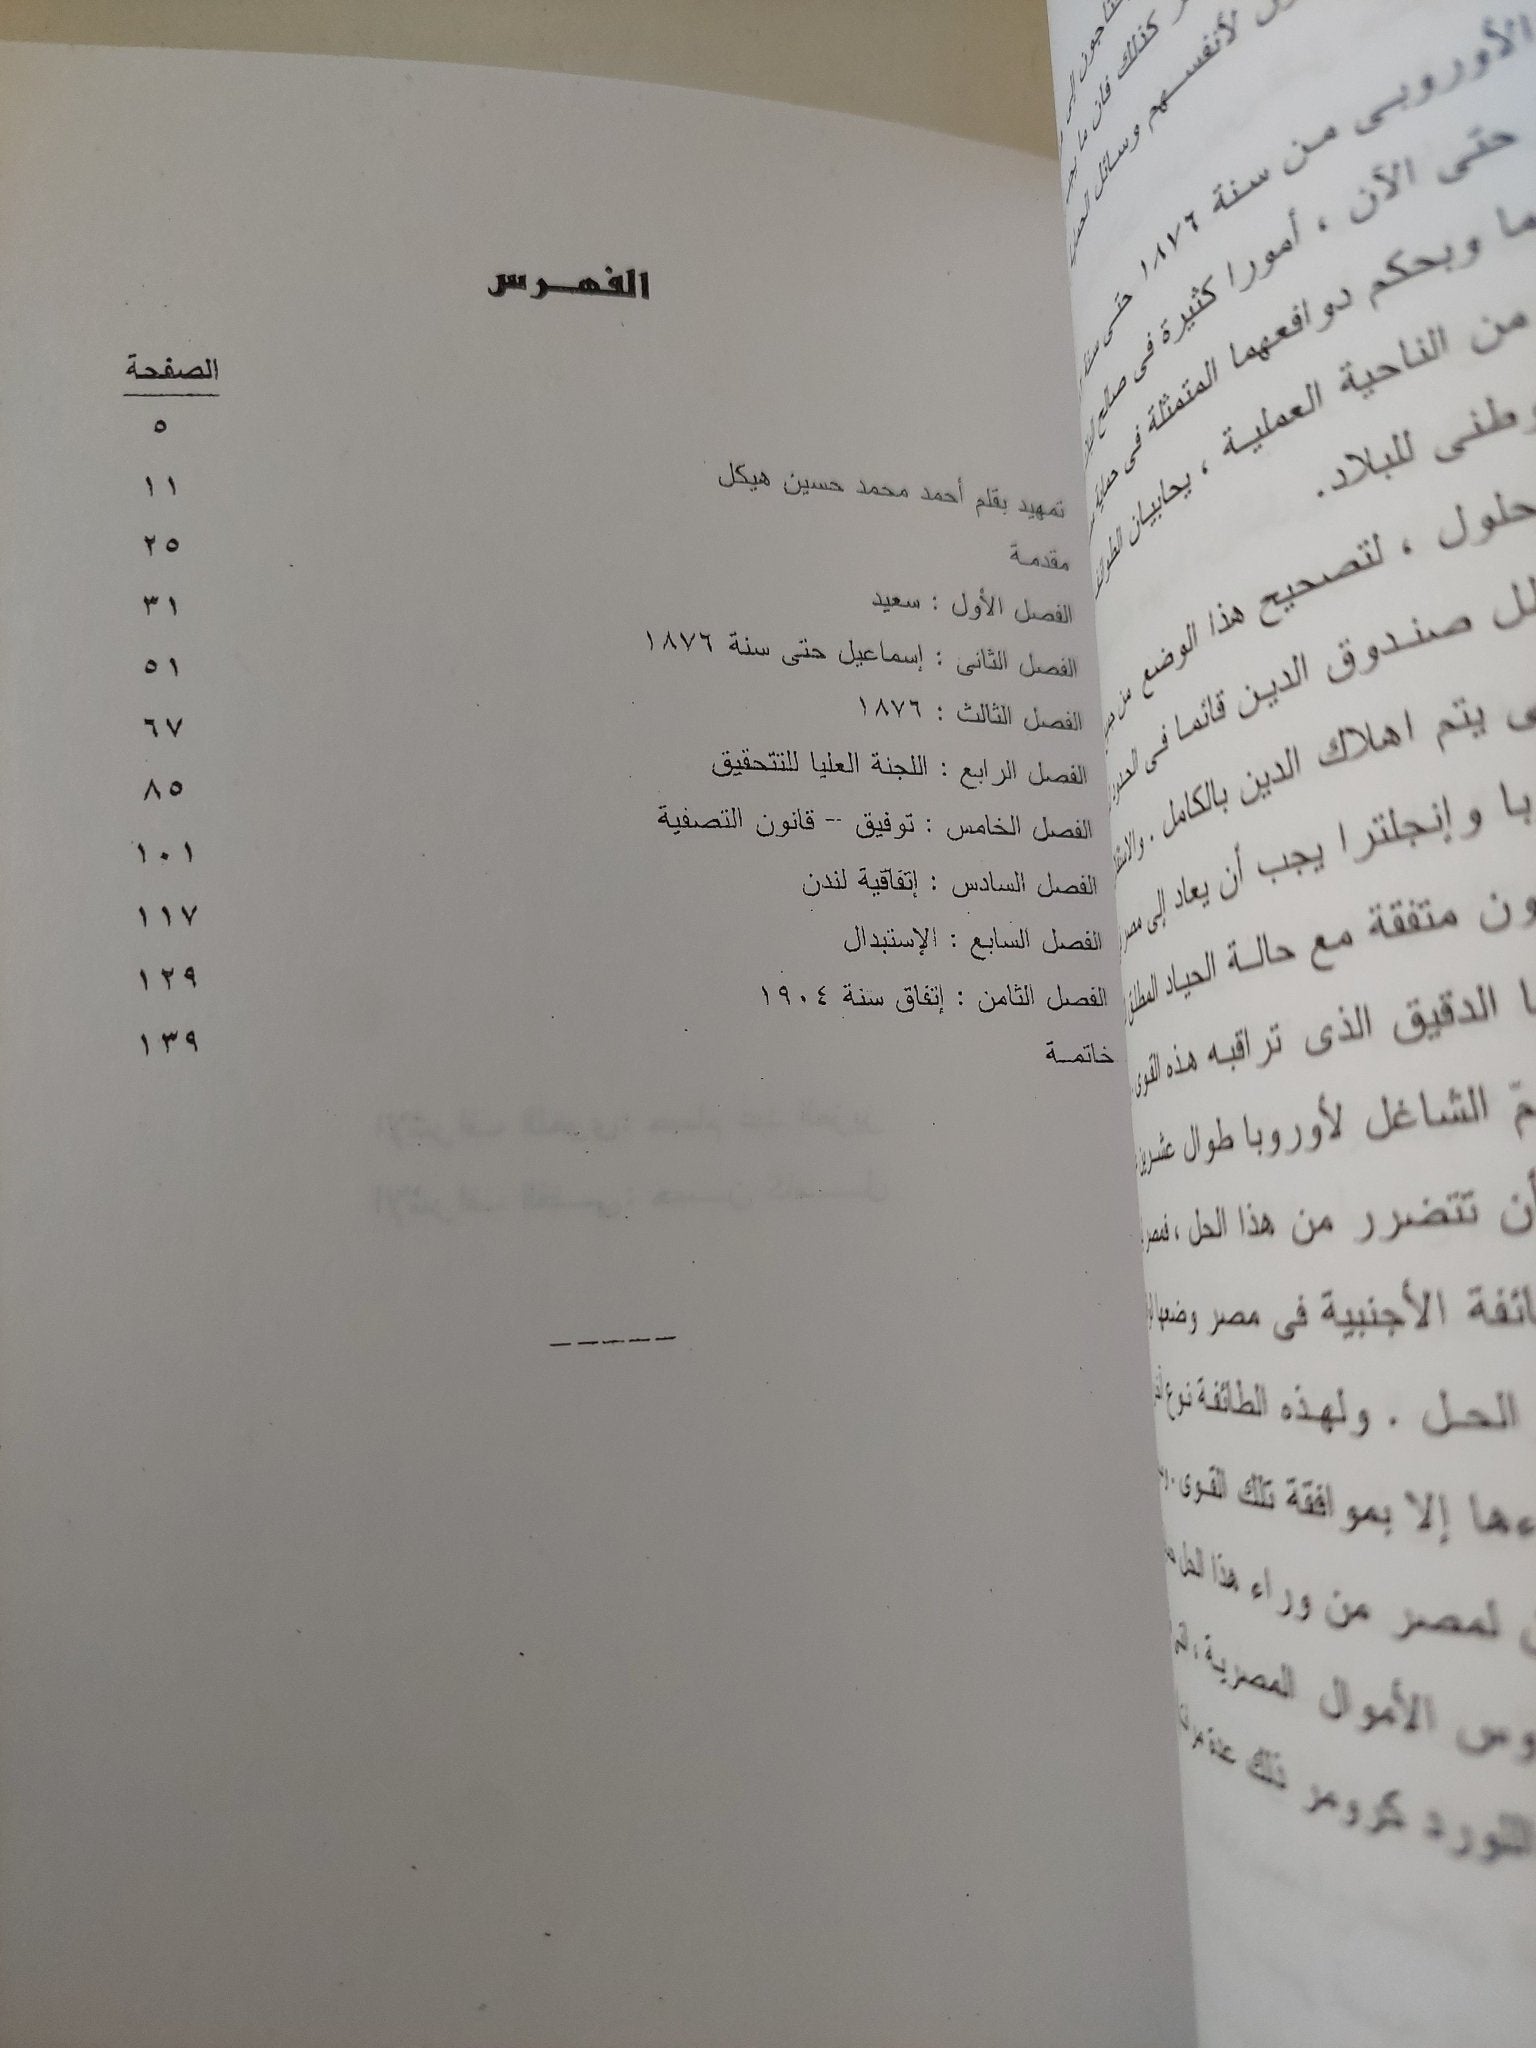 الفهرس
الصفحة
تمهيد بقلم أحمد محمد حسين هيكل ٥
مقدمة ١١
الفصل الأول : سعيد ٢٥
الفصل الثانى : إسماعيل حتى سنة ١٨٧٦ ٣١
الفصل الثالث : ١٨٧٦ ٥١
الفصل الرابع : اللجنة العليا للتتحقيق ٦٧
الفصل الخامس : توفيق -- قانون التصفية ٨٥
الفصل السادس : إتفاقية لندن ١٠١
الفصل السابع : الإستبدال ١١٧
الفصل الثامن : إتفاق سنة ١٩٠٤ ١٢٩
خاتمة ١٣٩
لأنفسهم وسائل
الأوروبى من سنة ١٨٧٦ حتى سنة
حتى الأن ، أمورا كثيرة فى صالح
وبحكم دوافعهما المتمثلة فى حماية
من الناحية العملية ، يحابيان
للبلاد.
حلول ، لتصحيح هذا الوضع من
صندوق الدين قائما فى
يتم اهلاك الدين بالكامل .
وإنجلترا يجب أن يعاد إلى مصر
متفقة مع حالة الحياد المطلق
الدقيق الذى تراقبه هذه القوى
الشاغل لأوروبا طوال عشرين
أن تتضرر من هذا الحل ، فمصر
الأجنبية فى مصر وضعها
الحل . ولهذه الطائفة نوع
إلا بموافقة تلك القوى .
لمصر من وراء هذا الحل
الأموال المصرية ،
اللورد كرومر تلك عدة مرات